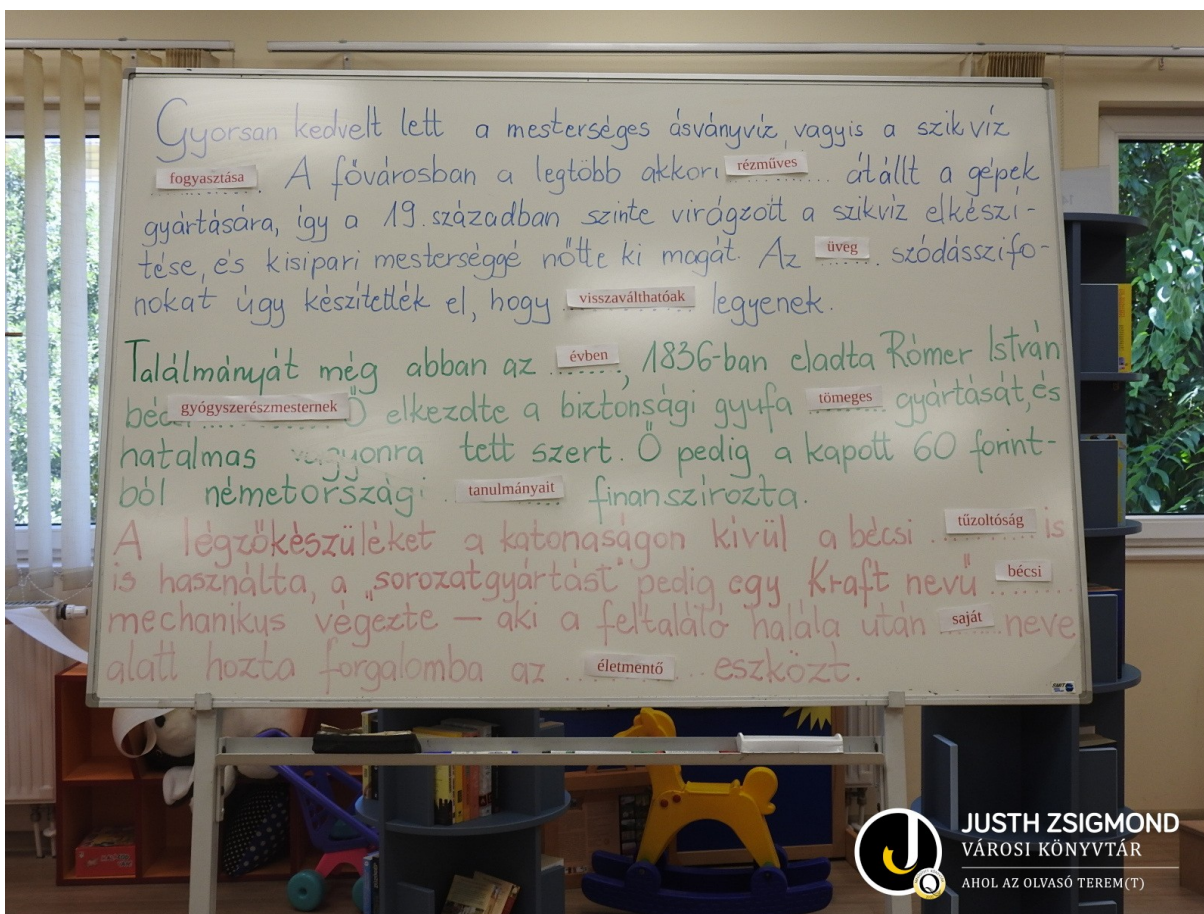 Gyorsan kedvelt lett a mesterséges ásványvíz, vagyis a szikvíz
fogyasztása. A fővárosban a legtöbb akkori rézműves átállt a gépek
gyártására, így a 19. században szinte virágzott a szikvíz elkészí-
tése, és kisipari mesterséggé nőtte ki magát. Az üveg szódásszifo-
nokat úgy készítették el, hogy visszaválthatóak legyenek.
Találmányát még abban az évben, 1836-ban eladta Rómer István
béc gyógyszerészmesternek Ő elkezdte a biztonsági gyufa tömeges gyártását, és
hatalmas vagyonra tett szert. Ő pedig a kapott 60 forint-
ból németországi tanulmányait finanszírozta.
A légzőkészüléket a katonaságon kívül a bécsi tűzoltóság is
is használta, a "sorozatgyártást" pedig egy Kraft nevű bécsi
mechanikus végezte – aki a feltaláló halála után saját neve
alatt hozta forgalomba az életmentő eszközt.
JUSTH ZSIGMOND
VÁROSI KÖNYVTÁR
AHOL AZ OLVASÓ TEREM(T)